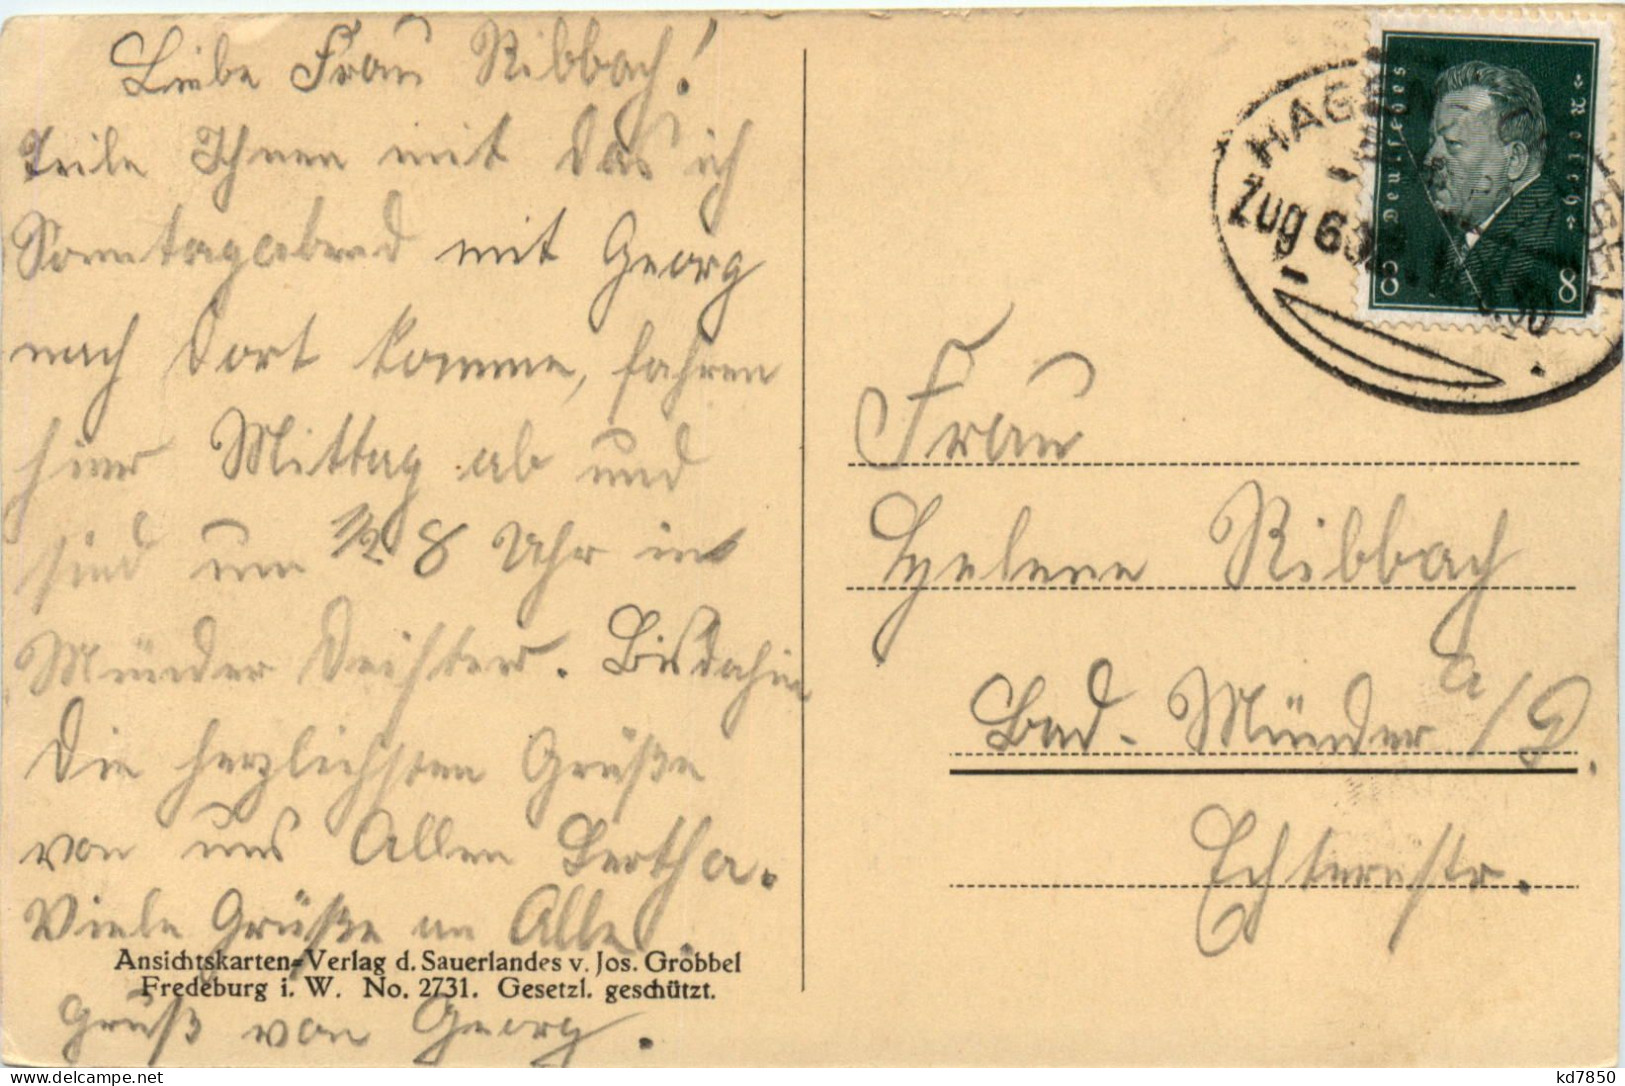 Liebe Frau Ribbach!
Teile Ihnen mit das ich
Sonntagabend mit Georg
nach dort komme, fahren
hier Mittag ab und
sind um 1/2 8 Uhr in
Münder Deister. Bisdahin
die herzlichsten Grüße
von uns Allen Bertha.
Viele Grüße an Alle
Ansichtskarten-Verlag d. Sauerlandes v. Jos. Gröbbel
Fredeburg i. W. No. 2731. Gesetzl. geschützt.
Gruß von Georg.
HAGEN
Zug
Deutsches Reich
8 8
Frau
Helene Ribbach
Bad-Münder a/D.
Echternstr.
kd7850